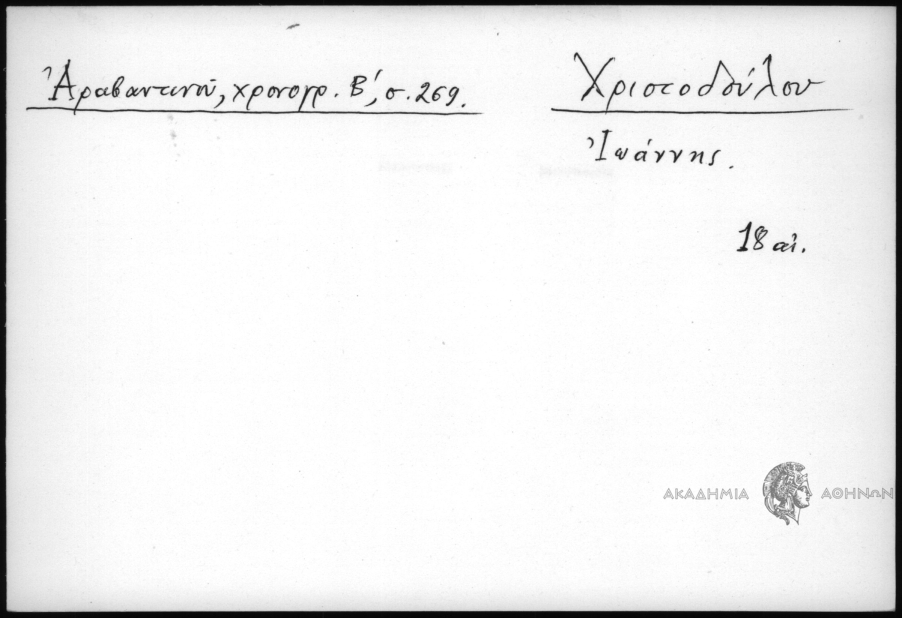 Ἀραβαντινοῦ, χρονογρ. Β΄, σ. 269.
Χριστοδούλου
Ἰωάννης.
18 αἰ.
ΑΚΑΔΗΜΙΑ ΑΘΗΝΩΝ